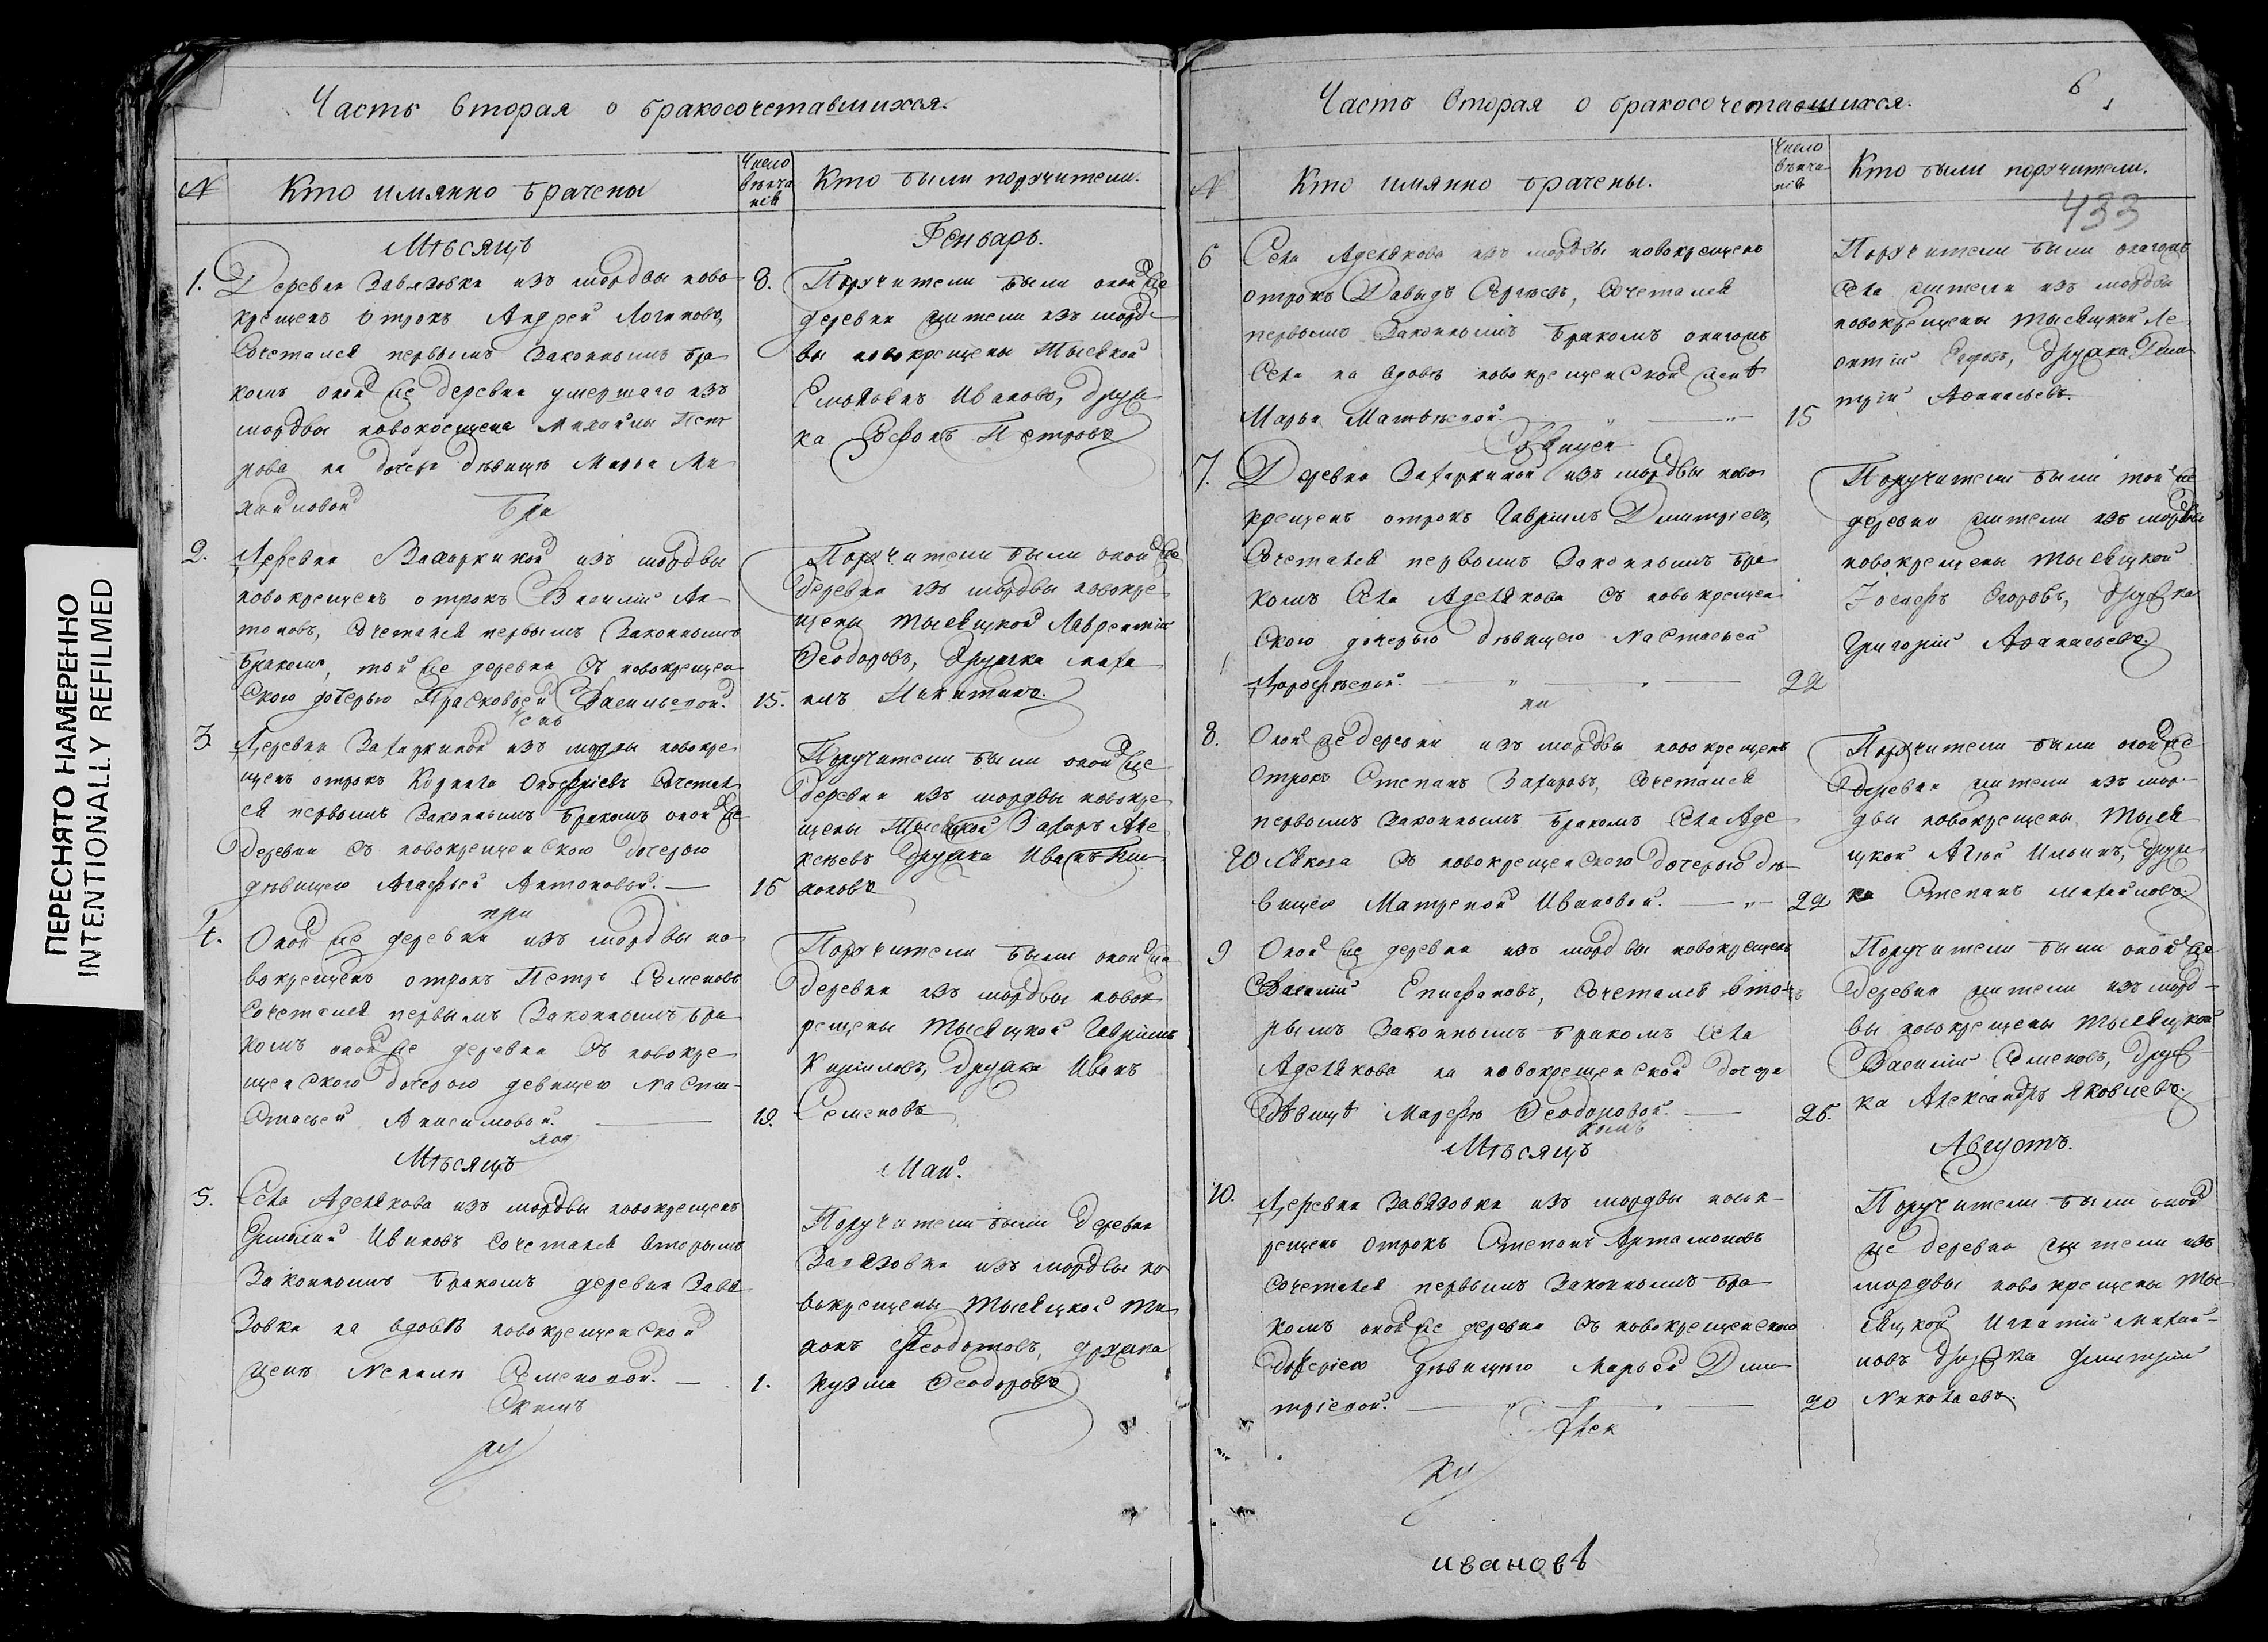 ПЕРЕСНЯТО НАМЕРЕННО
INTENTIONALLY REFILMED
Часть вторая о бракосочетавшихся.
№
Кто имянно брачены
Число венча нiя
Кто были поручители.
Мѣсяцъ
Генварь.
1. Деревни Завязовки изъ мордвы ново
крещенъ отрокъ Андрей Логиновъ,
Сочетался первымъ законнымъ бра
комъ оной же деревни умершаго изъ
мордвы новокрещена Михайлы Пет
рова на дочери дѣвицѣ Марьи Ми
хайловой
8.
Поручители были оной же
деревни жители изъ морд
вы новокрещены Тысяцкой
Емельянъ Ивановъ, друж
ка Іосифъ Петровъ
2. Деревни Захаркиной изъ мордвы
новокрещенъ отрокъ Василій Ан
тоновъ, Сочетался первымъ Законнымъ
бракомъ, той же деревни съ новокрещен
скою дочерью Прасковьей Васильевой.
15.
Поручители были оной же
деревни изъ мордвы новокре
щены тысяцкой Лаврентій
Ѳеодоровъ, дружка
Никитинъ.
3. Деревни Захаркиной изъ мордвы новокре
щенъ отрокъ Корнила Онофріевъ Сочетал
ся первымъ Законнымъ бракомъ оной же
деревни съ новокрещенскою дочерью
дѣвицею Агафьей Антоновой.
15
Поручители были оной же
деревни изъ мордвы новокре
щены Тысяцкой Захаръ Але
ксѣевъ дружка Иванъ
4. Оной же деревни изъ мордвы но
вокрещенъ отрокъ Петръ Семеновъ
Сочетался первымъ Законнымъ бра
комъ оной же деревни съ новокре
щенскою дочерью девицею Наста
стасьей Анисимовой.
19.
Поручители были оной же
деревни изъ мордвы новок
рещены тысяцкой Гавріилъ
Кириловъ, дружка Иванъ
Семеновъ
Мѣсяцъ
Май.
5. Села Аделякова изъ мордвы новокрещенъ
Ивановъ Сочетался вторымъ
Законнымъ бракомъ деревни Завя
зовки на вдовѣ новокрещенской
женѣ Семеновой.
1.
Поручители были деревни
Завязовки изъ мордвы но
вокрещены тысяцкой Ти
хонъ Ѳеодотовъ, дружка
Кузма Ѳеодоровъ
Часть вторая о бракосочетавшихся.
6
№
Кто имянно брачены.
Число венча нiя
Кто были поручители.
433
6 Села Аделякова изъ мордвы новокрещенъ
отрокъ Давыдъ Сергѣевъ, Сочетался
первымъ Законнымъ бракомъ онагожъ
Села на вдовѣ новокрещенской женѣ
Марьи Матвѣевой.
15
Поручители были онагожъ
Села жители изъ мордвы
новокрещены тысяцкой Ле
онтій дружка Дми
трій Аѳанасьевъ.
7. Деревни Захаркиной изъ мордвы ново
крещенъ отрокъ Гавріилъ Дмитріевъ,
Сочетался первымъ Законнымъ бра
комъ Села Аделякова съ новокрещен
скою дочерью дѣвицею Настасьей
22
Поручители были той же
деревни жители изъ мордвы
новокрещены тысяцкой
Іосифъ Егоровъ, дружка
Григорій Аѳанасьевъ.
8. Оной же деревни изъ мордвы новокрещенъ
отрокъ Степанъ Захаровъ, Сочетался
первымъ Законнымъ бракомъ Села Аде
лякова съ новокрещенскою дочерью дѣ
вицею Матреной Ивановой.
22
Поручители были оной же
деревни жители изъ мор
двы новокрещены тыся
цкой Ильинъ, друж
ка Степанъ Михайловъ.
9 Оной же деревни изъ мордвы новокрещенъ
Василій Епифановъ, Сочетался вто
рымъ Законнымъ бракомъ Села
Аделякова на новокрещенской дочери
дѣвицѣ Марфѣ Ѳеодоровой.
25.
Поручители были оной же
деревни жители изъ морд
вы новокрещены тысяцкой
Василій Семеновъ, друж
ка Александръ Яковлевъ.
Мѣсяцъ
Августъ.
10. Деревни Завязовки изъ мордвы новок
рещенъ отрокъ Степанъ Артамоновъ
Сочетался первымъ Законнымъ бра
комъ оной же деревни съ новокрещенскою
дочерью дѣвицею Марьей Дми
тріевой.
20
Поручители были оной
же деревни жители изъ
мордвы новокрещены ты
сяцкой Игнатій Михай
ловъ дружка Дмитрій
Николаевъ.
ивановъ